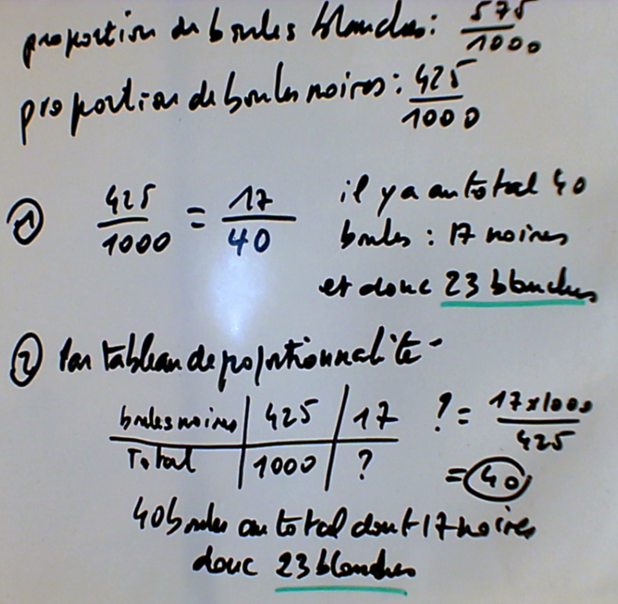 proportion de boules blanches: 575/1000
proportion de boules noires: 425/1000
① 425/1000 = 17/40 il y a au total 40
boules : 17 noires
et donc 23 blanches
② Par tableau de proportionnalité -
boules noires | 425 | 17 ? = 17x1000/425
Total | 1000 | ? = 40
40 boules au total dont 17 noires
donc 23 blanches